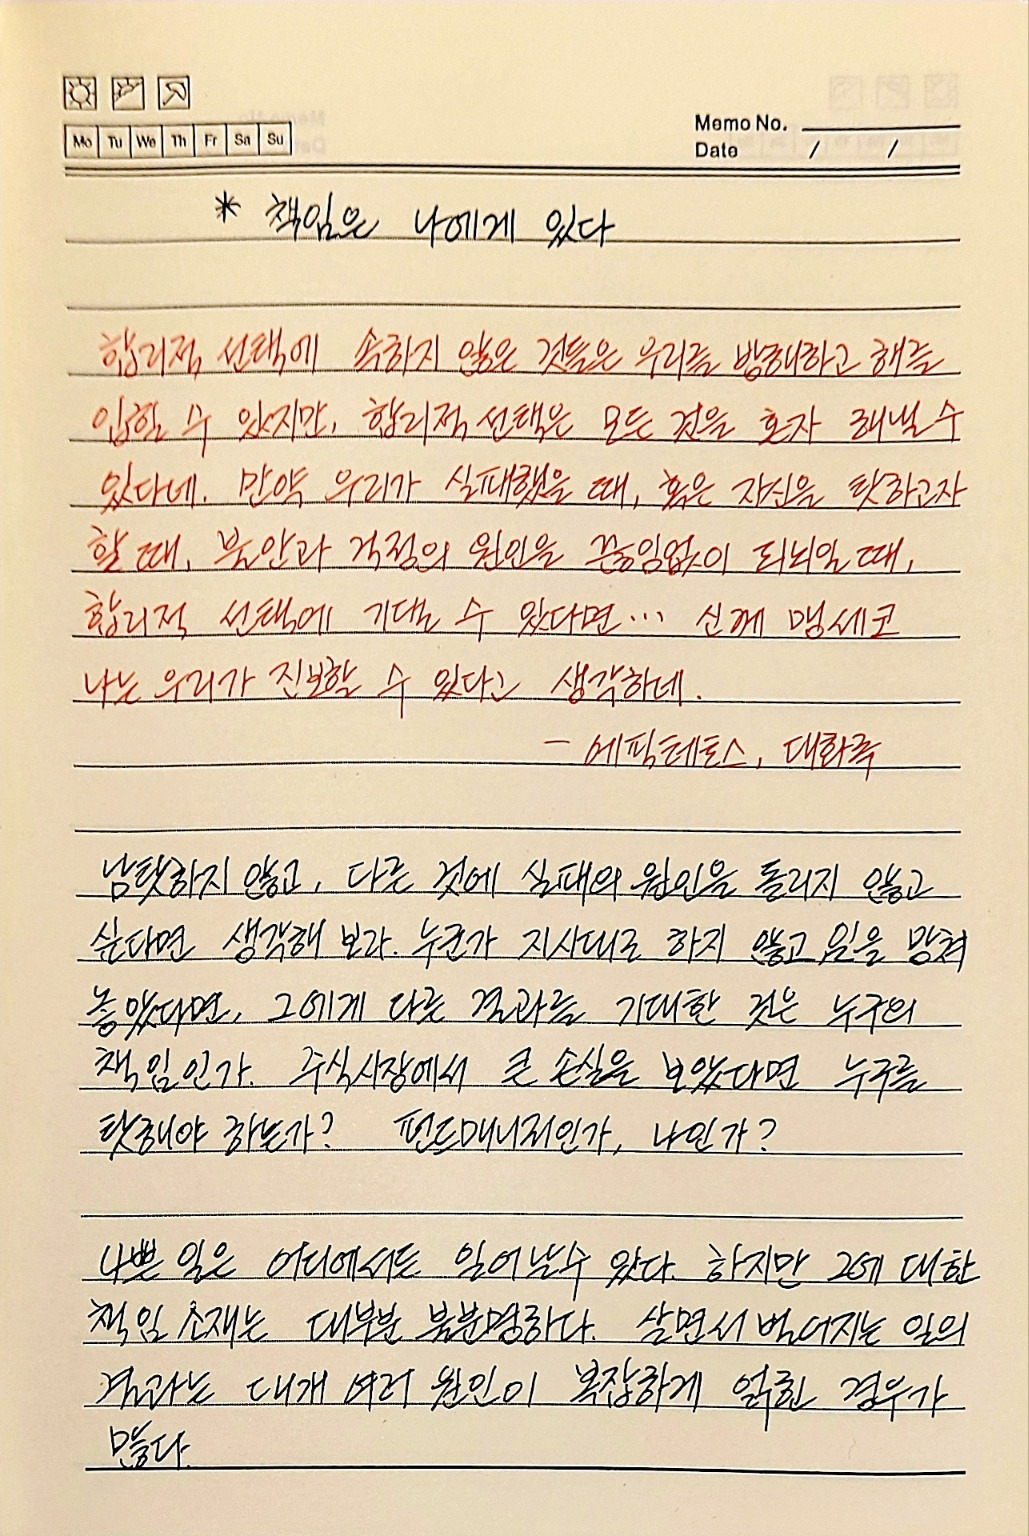 Mo Tu We Th Fr Sa Su
Memo No.
Date / /
* 책임은 나에게 있다
합리적 선택에 속하지 않은 것들은 우리를 방해하고 해를
입힐 수 있지만, 합리적 선택은 모든 것을 혼자 해낼 수
있다네. 만약 우리가 실패했을 때, 혹은 자신을 탓하고자
할 때, 불안과 걱정의 원인을 끊임없이 되뇌일 때,
합리적 선택에 기댈 수 있다면… 신께 맹세코
나는 우리가 진보할 수 있다고 생각하네.
- 에픽테토스, 대화록
남탓하지 않고, 다른 것에 실패의 원인을 돌리지 않고
싶다면 생각해 보라. 누군가 지시대로 하지 않고 일을 망쳐
놓았다면, 그에게 다른 결과를 기대한 것은 누구의
책임인가. 주식시장에서 큰 손실을 보았다면 누구를
탓해야 하는가? 펀드매니저인가, 나인가?
나쁜 일은 어디에서든 일어날수 있다. 하지만 그에 대한
책임 소재는 대부분 불분명하다. 살면서 벌어지는 일의
결과는 대개 여러 원인이 복잡하게 얽힌 경우가
많다.